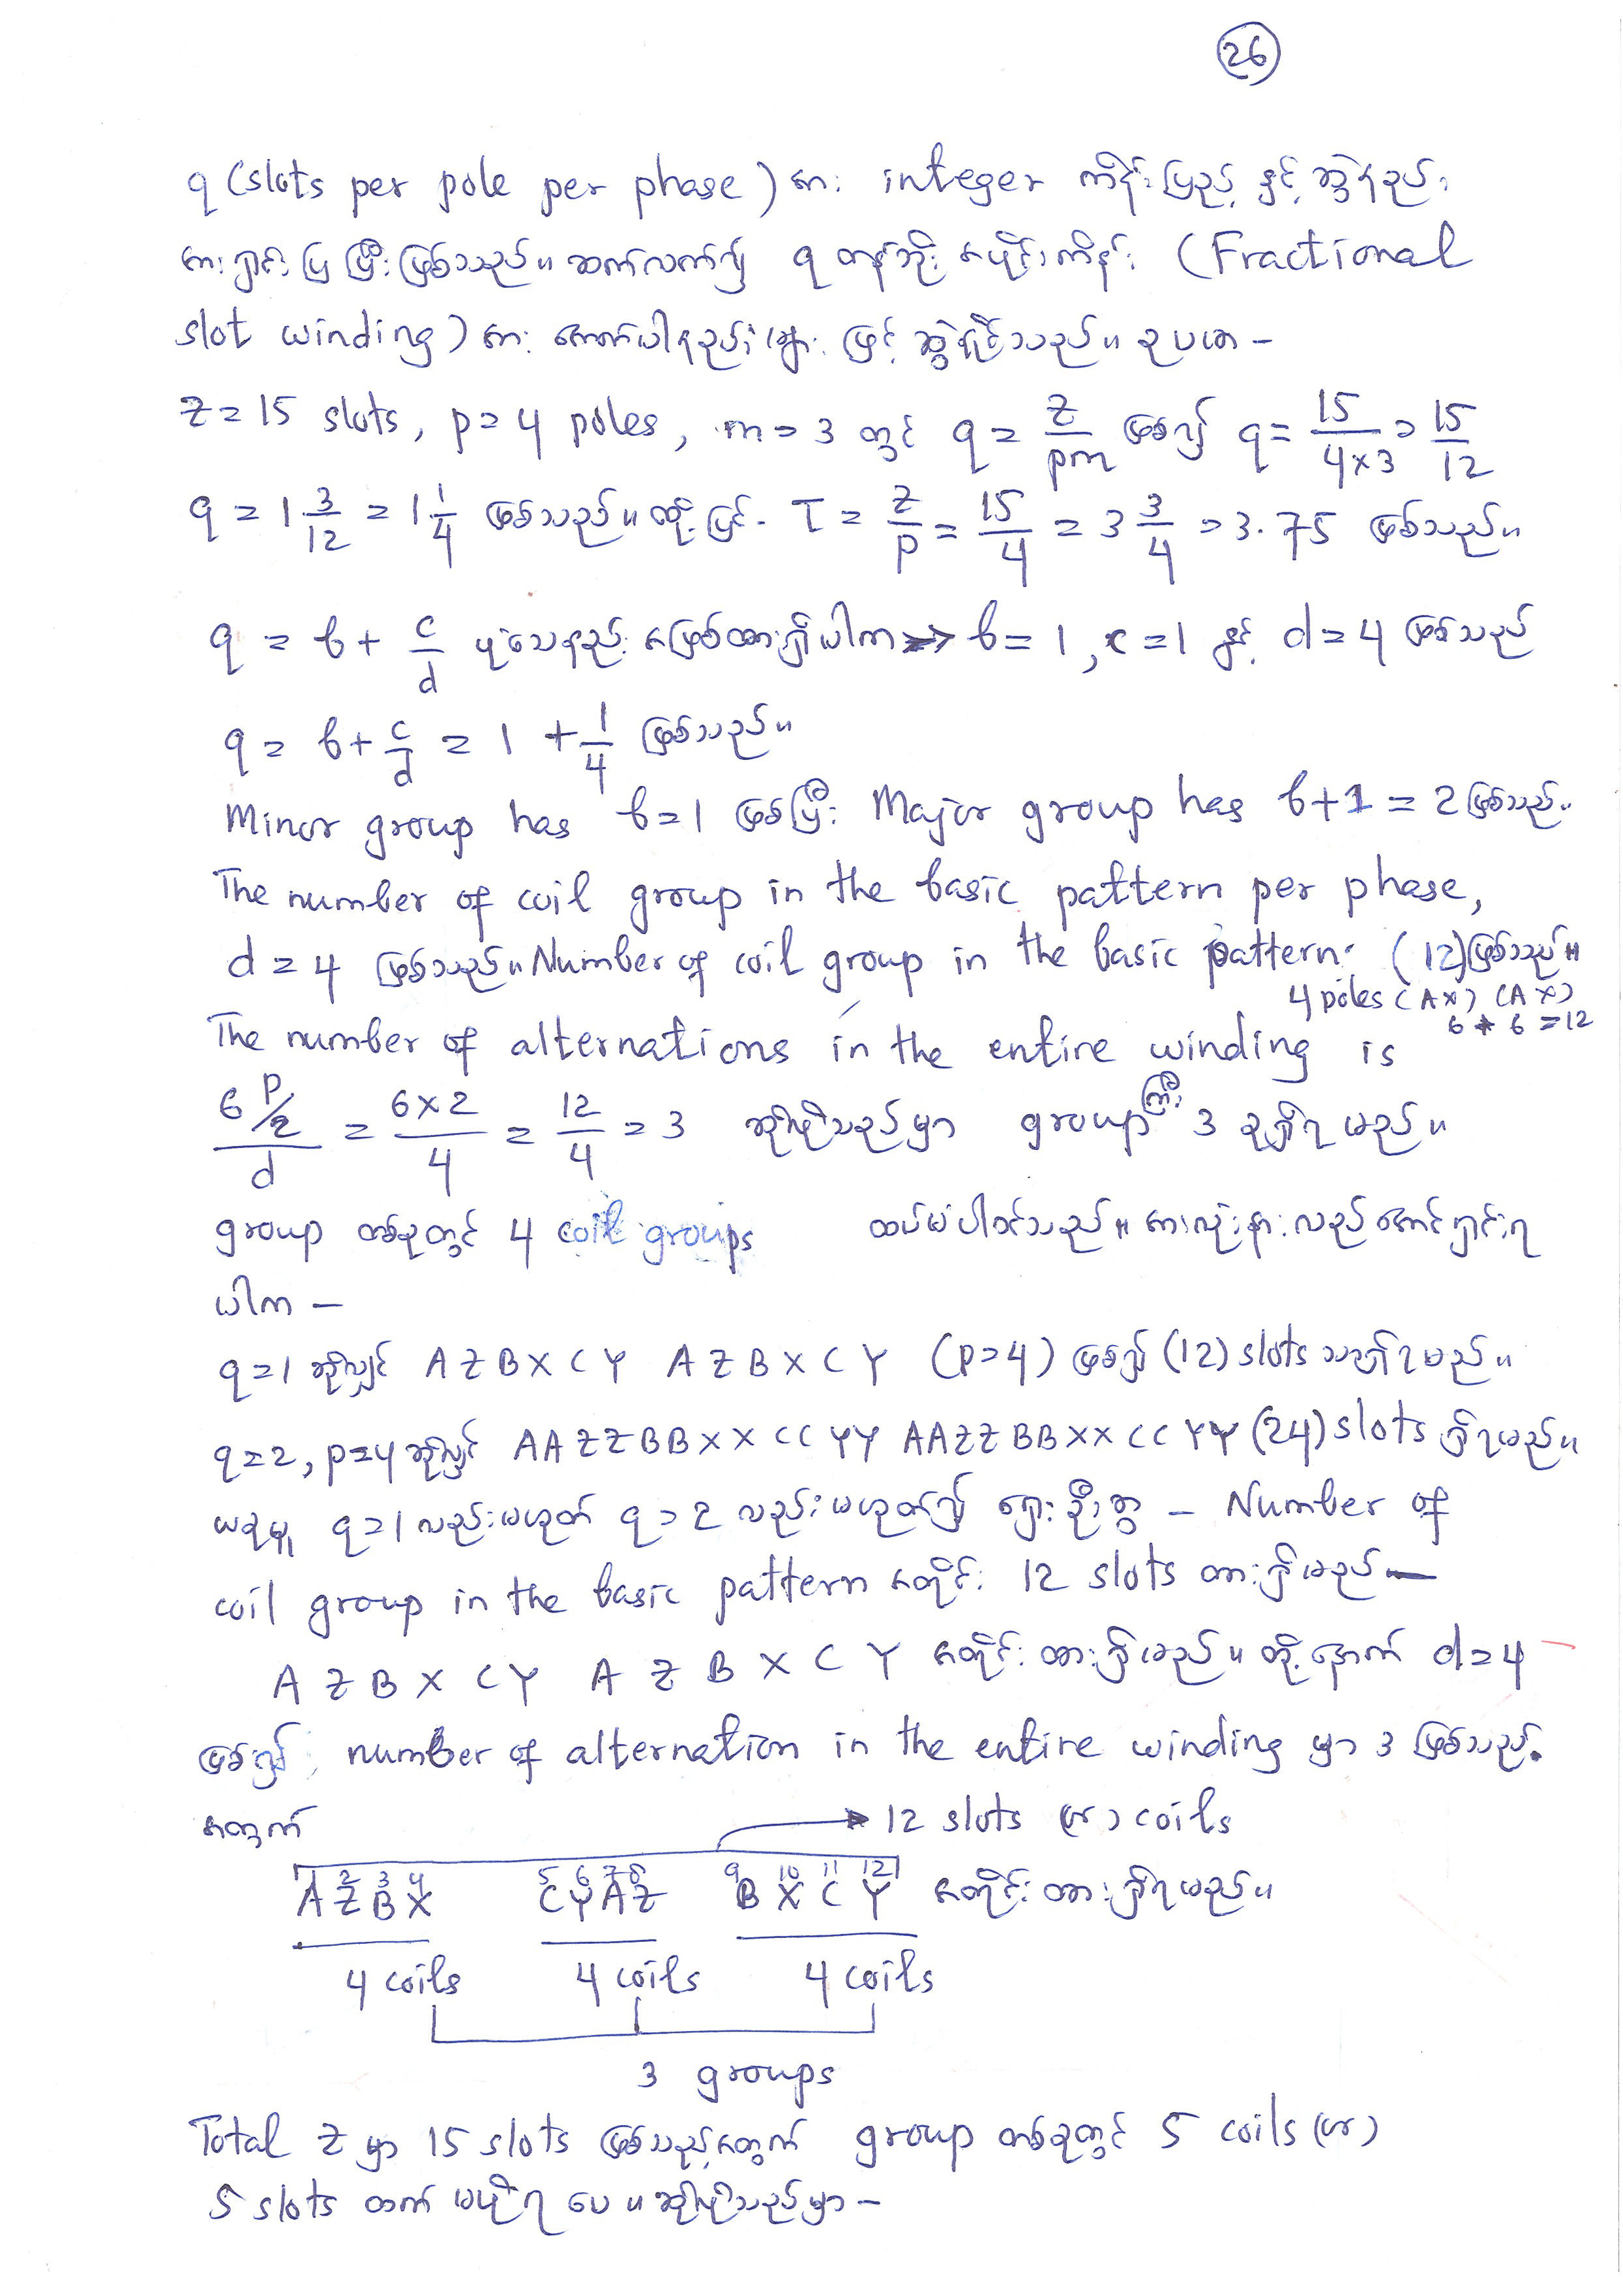 26
q (slots per pole per phase) အား integer ကိန်းပြည့် နှင့် ဆွဲနည်း
အားရှင်းပြ ပြီးဖြစ်သည်။ ဆက်လက်၍ q တန်ဘိုး အပိုင်းကိန်း (Fractional
slot winding) အား အောက်ပါနည်းများ ဖြင့် ဆွဲနိုင်သည်။ ဥပမာ –
Z = 15 slots, p = 4 poles, m = 3 တွင် q = Z/pm ဖြစ်၍ q = 15/4×3 = 15/12
q = 1 3/12 = 1 1/4 ဖြစ်သည်။ ထို့ပြင် τ = Z/p = 15/4 = 3 3/4 = 3.75 ဖြစ်သည်။
q = b + c/d ပုံသေနည်း အဖြစ်ထား၍ပါက → b = 1, c = 1 နှင့် d = 4 ဖြစ်သည်
q = b + c/d = 1 + 1/4 ဖြစ်သည်။
Minor group has b = 1 ဖြစ်ပြီး Major group has b+1 = 2 ဖြစ်သည်။
The number of coil group in the basic pattern per phase,
d = 4 ဖြစ်သည်။ Number of coil group in the basic pattern (12) ဖြစ်သည်။
4 poles (AX) (AX)
6 + 6 = 12
The number of alternations in the entire winding is
6 P/2 / d = 6×2/4 = 12/4 = 3 ဆိုလိုသည်မှာ group ကြီး 3 ခုရှိရမည်။
group တစ်ခုတွင် 4 coil groups ထပ်မံပါဝင်သည်။ အားလုံးနားလည်အောင်ရှင်းရ
ပါက –
q = 1 ဆိုလျှင် A Z B X C Y A Z B X C Y (p = 4) ဖြစ်၍ (12) slots သာရှိရမည်။
q = 2, p = 4 ဆိုလျှင် AA ZZ BB XX CC YY AA ZZ BB XX CC YY (24) slots ရှိရမည်။
ယခုမူ q = 1 လည်းမဟုတ် q = 2 လည်းမဟုတ်၍ ရှေးဦးစွာ – Number of
coil group in the basic pattern အတိုင်း 12 slots ထားရှိမည် –
A Z B X C Y A Z B X C Y အတိုင်း ထားရှိမည်။ ထို့နောက် d = 4
ဖြစ်၍ number of alternation in the entire winding မှာ 3 ဖြစ်သည်.
အတွက်
→ 12 slots (or) coils
2 3 4 5 6 7 8 9 10 11 12
A Z B X C Y A Z B X C Y အတိုင်း ထားရှိရမည်။
4 coils 4 coils 4 coils
3 groups
Total Z မှာ 15 slots ဖြစ်သည့်အတွက် group တစ်ခုတွင် 5 coils (or)
5 slots ထက် မပိုရ ပေ။ ဆိုလိုသည်မှာ –